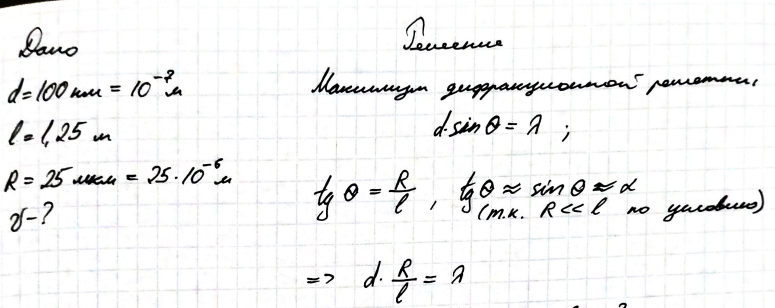 Дано
d = 100 нм = 10⁻⁷ м
l = 1,25 м
R = 25 мкм = 25·10⁻⁶ м
υ - ?
Решение
Максимум дифракционной решетки:
d·sinθ = λ ;
tg θ = R/l , tg θ ≈ sin θ ≈ α
(т.к. R << l по условию)
=> d · R/l = λ